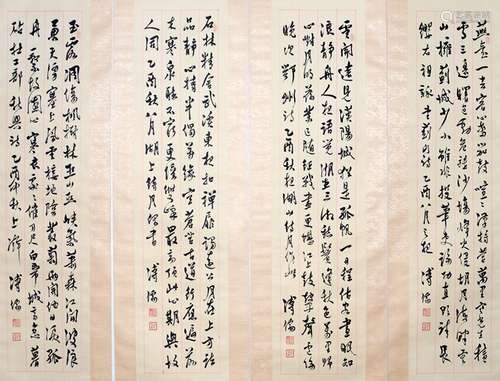 燕臺一去客心驚笳鼓喧喧漢將營萬里寒光生積
雪三邊曙色動危旌沙場烽火侵胡月海畔雲
山擁薊城少小雖非投筆吏論功直欲請長
纓右祖詠望薊門詩乙酉八月之望 溥儒
雲開遠見漢陽城猶是孤帆一日程估客晝眠知
浪靜舟人夜語覺潮生三湘愁鬢逢秋色萬里歸
心對月明舊業已隨征戰盡更堪江上鼓鼙聲盧綸
晚次鄂州詩乙酉秋 湖山待月作 溥儒
石林精舍武溪東夜扣禪扉謁遠公月在上方諸
品靜心持半偈萬緣空蒼苔古道行應遍落
木寒泉聽不窮更憶雙峰最高頂此心期與故
人同 乙酉秋八月湖上待月 書 溥儒
玉露凋傷楓樹林巫山巫峽氣蕭森江間波浪
兼天湧塞上風雲接地陰叢菊兩開他日淚孤
舟一繫故園心寒衣處處催刀尺白帝城高急暮
砧杜工部秋興詩乙酉秋上澣 溥儒